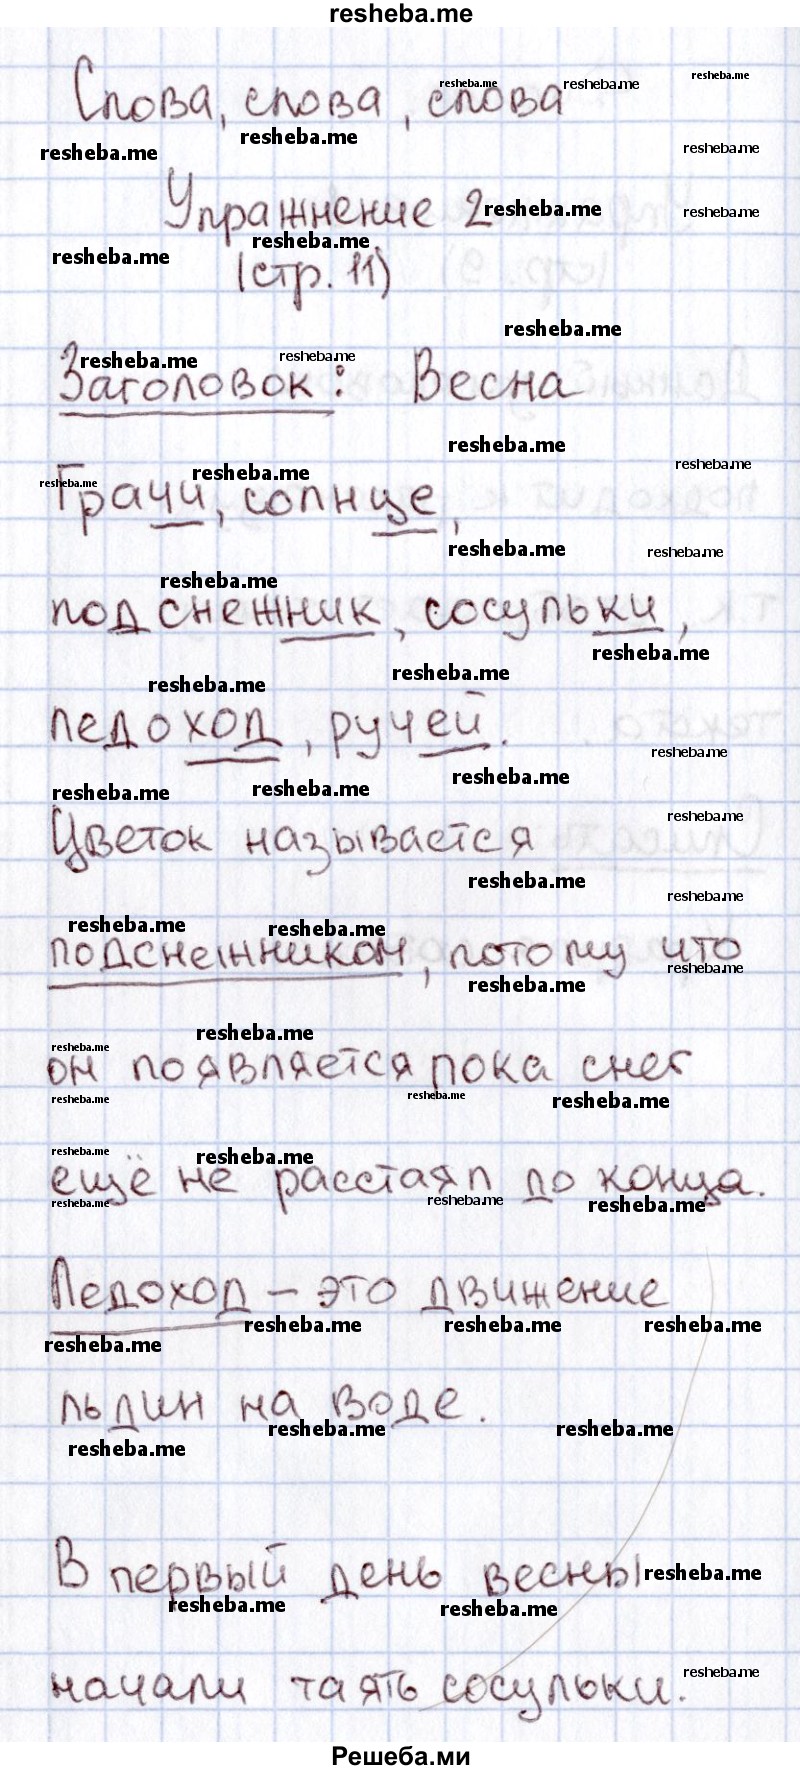 resheba.me
Слова, слова, слова
Упражнение 2
(стр. 11)
Заголовок: Весна
Грачи, солнце,
подснежник, сосульки,
ледоход, ручей.
Цветок называется
подснежником, потому что
он появляется пока снег
ещё не расстаял до конца.
Ледоход – это движение
льдин на воде.
В первый день весны
начали таять сосульки.
Решеба.ми